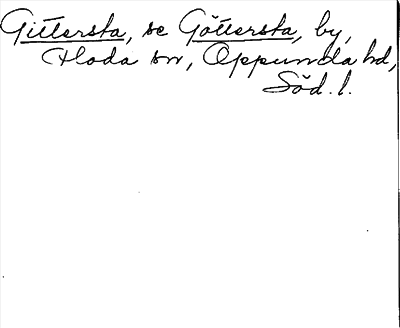 Gittersta, se Göttersta, by,
Floda sn, Oppunda hd,
Söd. l.